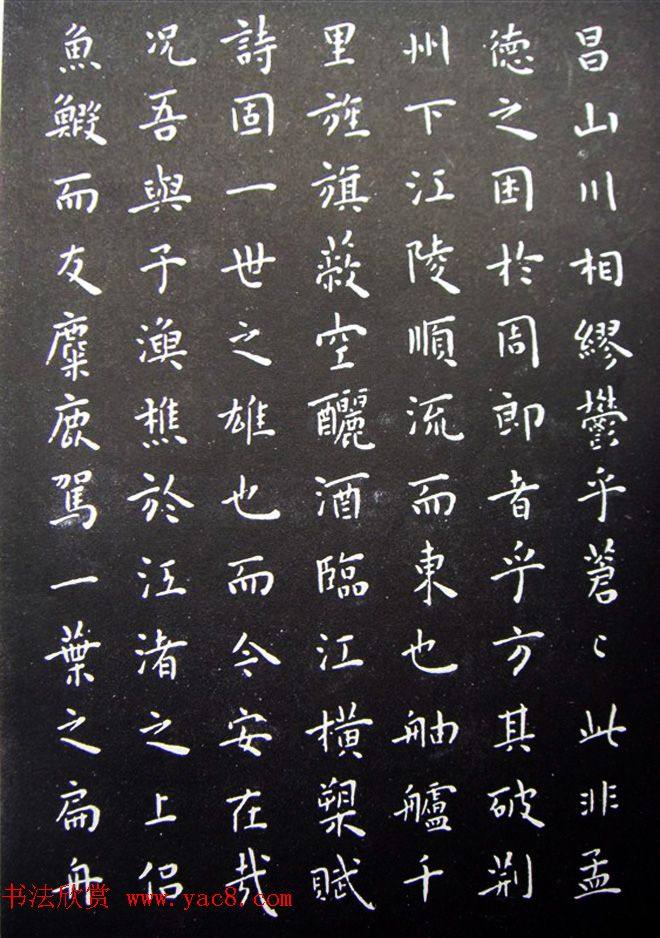 昌山川相繆鬱乎蒼〻此非孟
德之困於周郎者乎方其破荆
州下江陵順流而東也舳艫千
里旌旗蔽空釃酒臨江橫槊賦
詩固一世之雄也而今安在哉
况吾與子漁樵於江渚之上侣
魚鰕而友麋鹿駕一葉之扁舟
书法欣赏 www.yac8.com